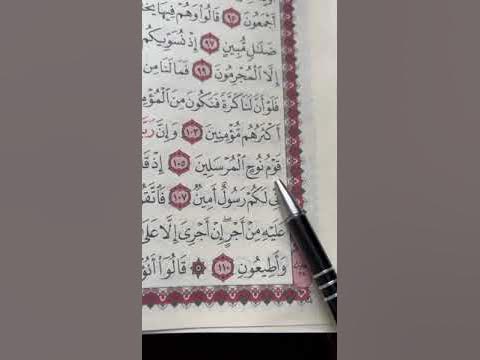 أَجْمَعُونَ ﴿٩٥﴾ قَالُوا۟ وَهُمْ فِيهَا
ضَلَٰلٍ مُّبِينٍ ﴿٩٧﴾ إِذْ نُسَوِّيكُم
إِلَّا ٱلْمُجْرِمُونَ ﴿٩٩﴾ فَمَا لَنَا مِن
فَلَوْ أَنَّ لَنَا كَرَّةً فَنَكُونَ مِنَ
أَكْثَرُهُم مُّؤْمِنِينَ ﴿١٠٣﴾ وَإِنَّ
قَوْمُ نُوحٍ ٱلْمُرْسَلِينَ ﴿١٠٥﴾ إِذْ
لَكُمْ رَسُولٌ أَمِينٌ ﴿١٠٧﴾
عَلَيْهِ مِنْ أَجْرٍ إِنْ أَجْرِىَ إِلَّا عَلَىٰ
وَأَطِيعُونِ ﴿١١٠﴾ ۞ قَالُوٓا۟